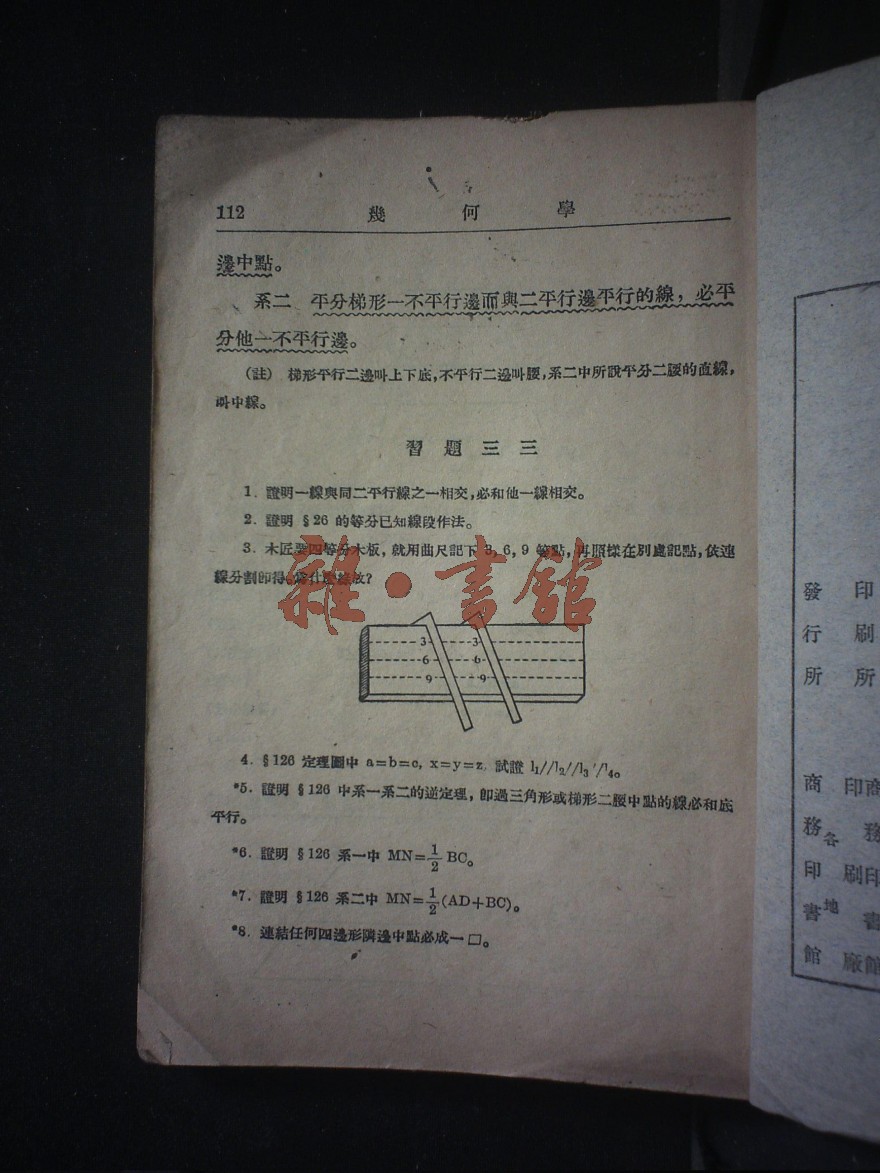 112 幾何學
邊中點。
系二 平分梯形一不平行邊而與二平行邊平行的線，必平
分他一不平行邊。
(註) 梯形平行二邊叫上下底，不平行二邊叫腰，系二中所說平分二腰的直線，
叫中線。
習題三三
1. 證明一線與同二平行線之一相交，必和他一線相交。
2. 證明 §26 的等分已知線段作法。
3. 木匠要四等分木板，就用曲尺記下 3, 6, 9 等點，再照樣在別處記點，依連
線分割即得。爲什麼這樣做？
3 3
6 6
9 9
4. §126 定理圖中 a=b=c, x=y=z, 試證 l₁//l₂//l₃//l₄。
*5. 證明 §126 中系一系二的逆定理，即過三角形或梯形二腰中點的線必和底
平行。
*6. 證明 §126 系一中 MN=1/2 BC。
*7. 證明 §126 系二中 MN=1/2(AD+BC)。
*8. 連結任何四邊形隣邊中點必成一□。
雜·書館
印刷所
發行所
印刷廠
商務印書館
各地
商務印書館